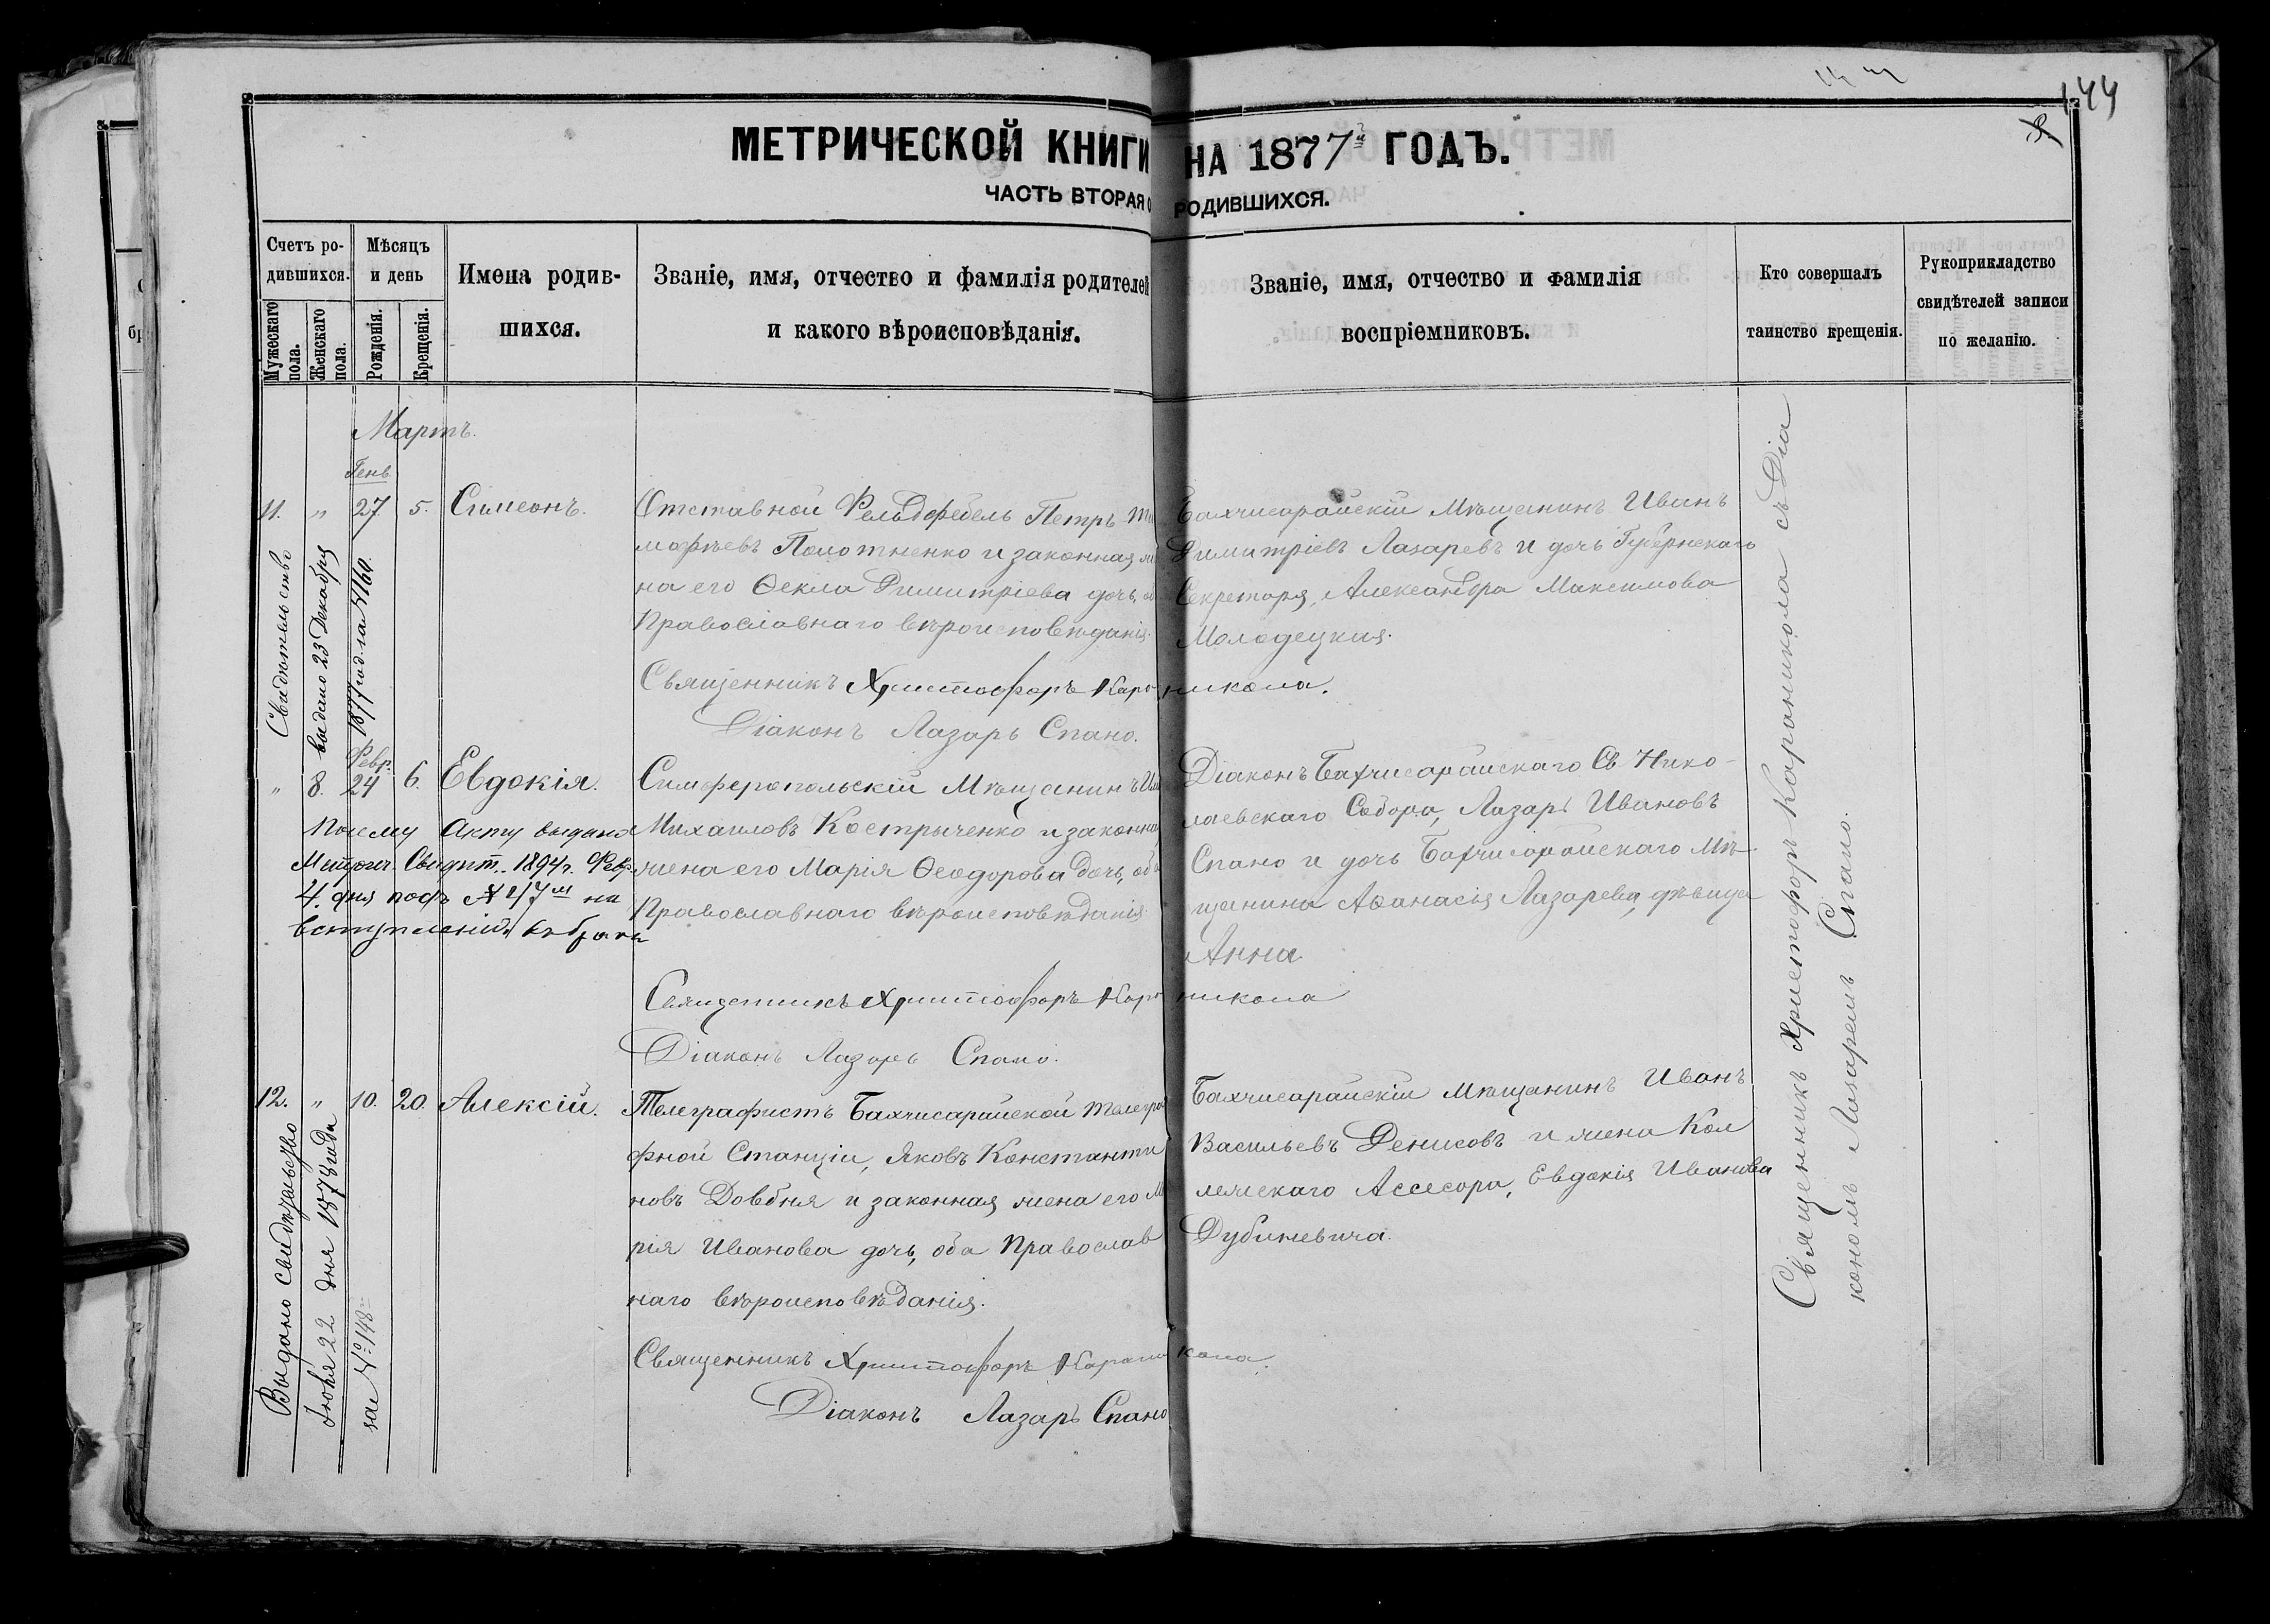 144
МЕТРИЧЕСКОЙ КНИГИ НА 1877й ГОДЪ.
ЧАСТЬ ВТОРАЯ О РОДИВШИХСЯ.
Счетъ ро-
дившихся.
Мужескаго пола.
Женскаго пола.
Мѣсяцъ
и день
Рожденія.
Крещенія.
Имена родив-
шихся.
Званіе, имя, отчество и фамилія родителей
и какого вѣроисповѣданія.
Званіе, имя, отчество и фамилія
воспріемниковъ.
Кто совершалъ
таинство крещенія.
Рукоприкладство
свидѣтелей записи
по желанію.
Мартъ.
Генв.
11. " 27. 5. Симеонъ.
Отставной Фельдфебель Петръ Ти
мофѣевъ Полотненко и законная же
на его Ѳекла Димитріева дочь, об
Православнаго вѣроисповѣданія.
Бахчисарайскій Мѣщанинъ Иванъ
Димитріевъ Лазаревъ и дочь Губернскаго
Секретаря, Александра Максимова
Молодецкая.
Священникъ Христофоръ Караникола.
Діаконъ Лазарь Спано.
Свидѣтельство
выдано 23 Декабря
1877 год. за №160.
Февр.
" 8. 24 6. Евдокія.
Симферопольскій Мѣщанинъ
Михаиловъ Кострыченко и законна
жена его Марія Ѳеодорова дочь, об
Православнаго вѣроисповѣданія
Діаконъ Бахчисарайскаго Св. Нико-
лаевскаго Собора, Лазарь Ивановъ
Спано и дочь Бахчисарайскаго Мѣ-
щанина Аѳанасія Лазарева, дѣвица
Анна
По сему Акту выдано
Метрич. Свидѣт. 1894г. Февр.
4. дня подъ №47м на
вступленіе въ бракъ
Священникъ Христофоръ Караникола
Діаконъ Лазарь Спано.
12. " 10. 20. Алексій.
Телеграфистъ Бахчисарайской телегра
фной Станціи, Яковъ Константи
новъ Довбня и законная жена его М
рія Иванова дочь, оба Православ
наго вѣроисповѣданія.
Бахчисарайскій Мѣщанинъ Иванъ
Васильевъ Денисовъ и жена Кол
лежскаго Ассесора, Евдокія Иванова
Дубиневича.
Священникъ Христофоръ Караникола.
Діаконъ Лазарь Спано
Выдано свидѣтельство
Іюня 22 дня 1878 года
за №148
Священникъ Христофоръ Караникола съ Діа
кономъ Лазаремъ Спано.